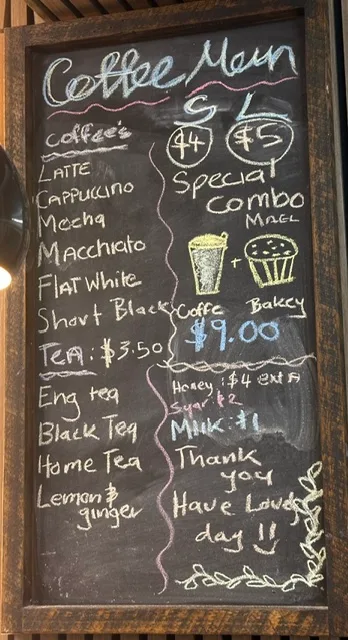 Coffee Menu
S L
$4 $5
Coffee's
LATTE
CAPPUCCINO
Mocha
Macchiato
FlAT White
Short Black
TEA : $3.50
Eng tea
Black Tea
Home Tea
Lemon &
ginger
Special
combo
MAEL
+
Coffe Bakey
$9.00
Honey : $4 extA
Sugr : $2
Milk : $1
Thank
you
Have Lovely
day !!